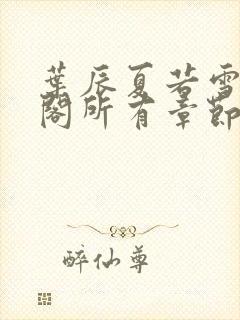 葉辰夏若雪
閣所有章節
醉仙尊